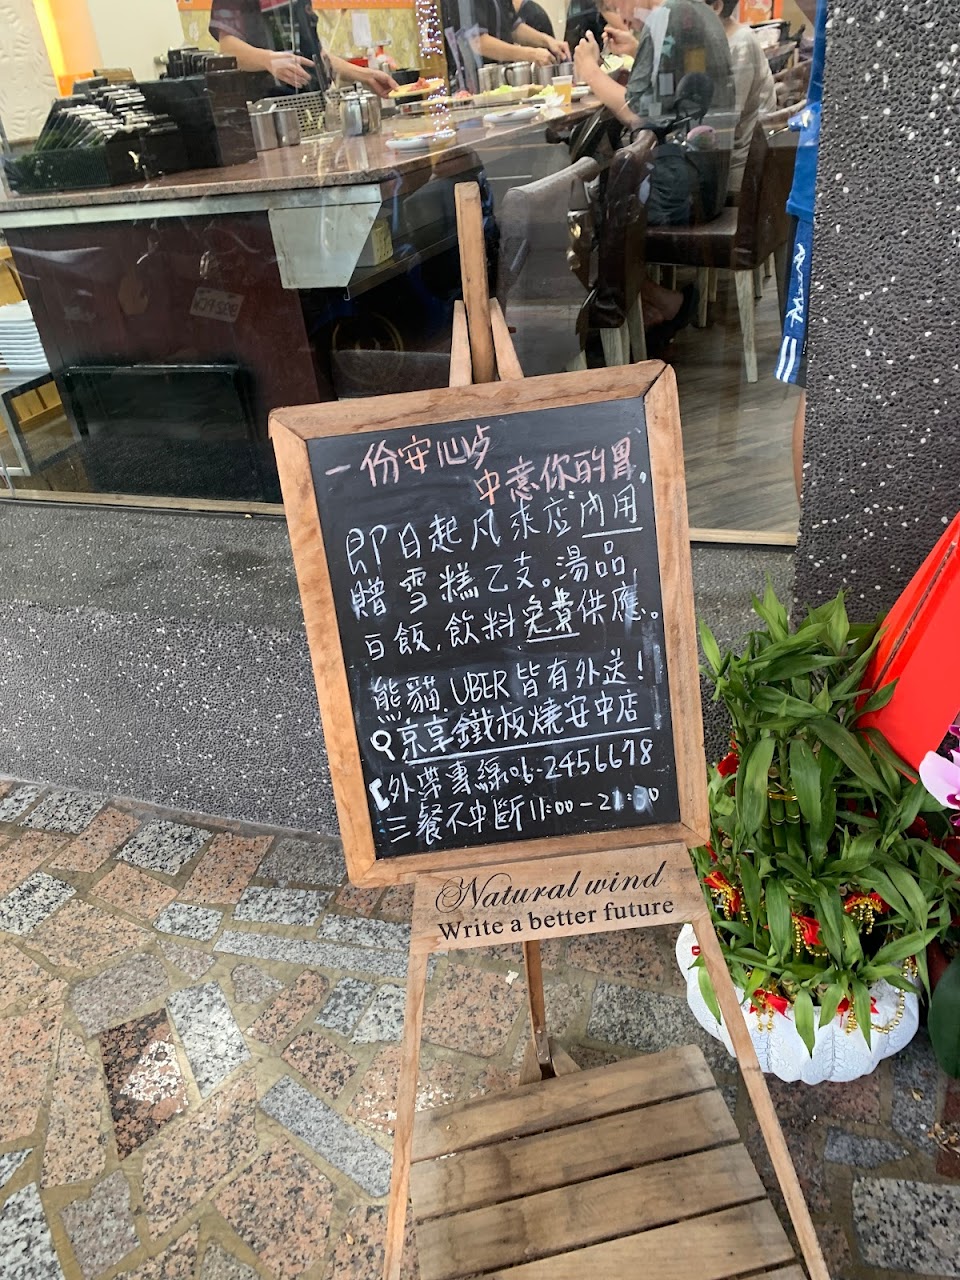 一份安心
中意你的胃
即日起凡來店內用,
贈雪糕乙支。湯品,
白飯,飲料免費供應。
熊貓.UBER皆有外送!
京享鐵板燒安中店
外帶專線:06-2456678
三餐不中斷11:00-21:30
Natural wind
Write a better future